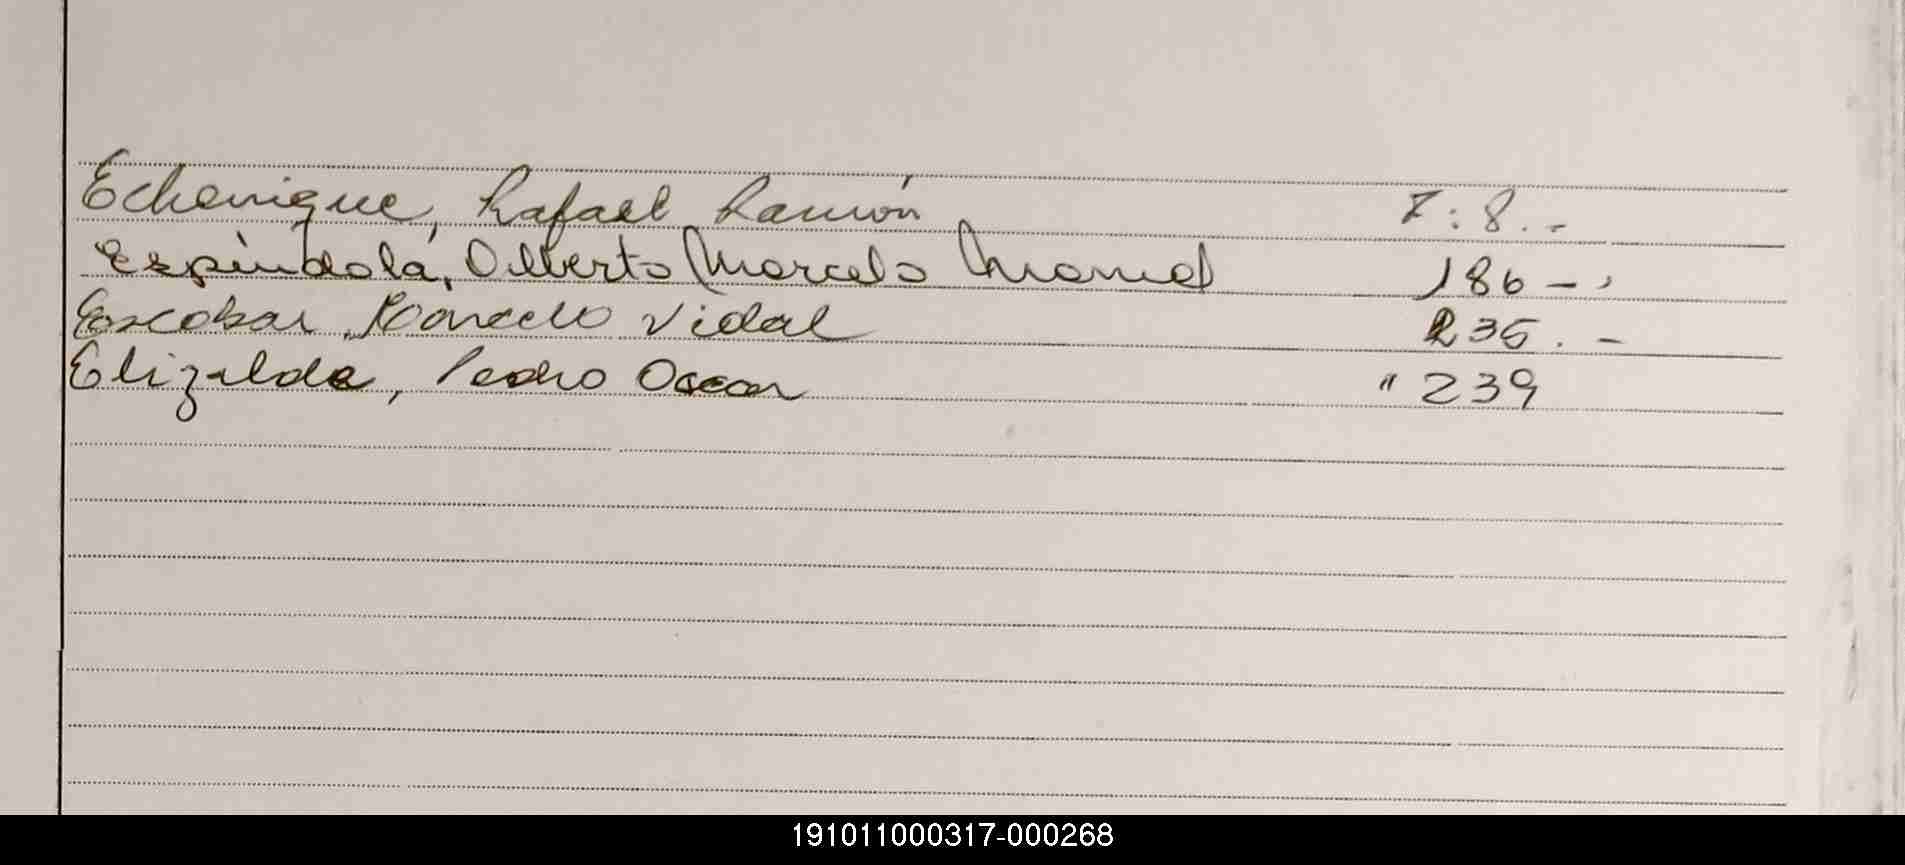 Echenique, Rafael Ramón F:8.-
Espíndola, Alberto Marcelo Manuel 186-,
Escobar, Marcelo Vidal 235.-
Elizalde, Pedro Oscar " 239
191011000317-000268